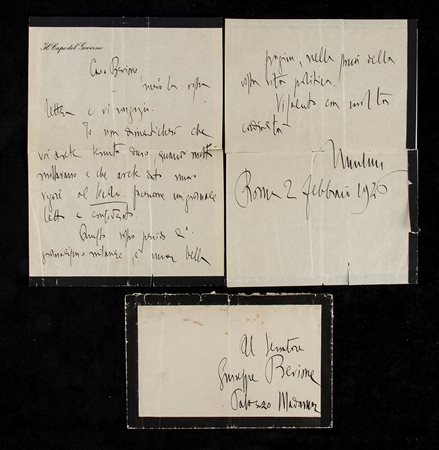 Il Capo del Governo
Caro Bevione
ricevo la vostra
lettera e vi ringrazio.
Io non dimenticherò che
voi avete tenuto duro, quando molti
mollavano e che avete dato nuovo
vigore al Secolo, facendone un giornale
letto e considerato.
Questo vostro periodo di
giornalismo milanese, è una bella
pagina, nella storia della
vostra vita politica.
Vi saluto con molta
cordialità
Mussolini
Roma 2 febbraio 1926
Al Senatore
Giuseppe Bevione
Palazzo Madama